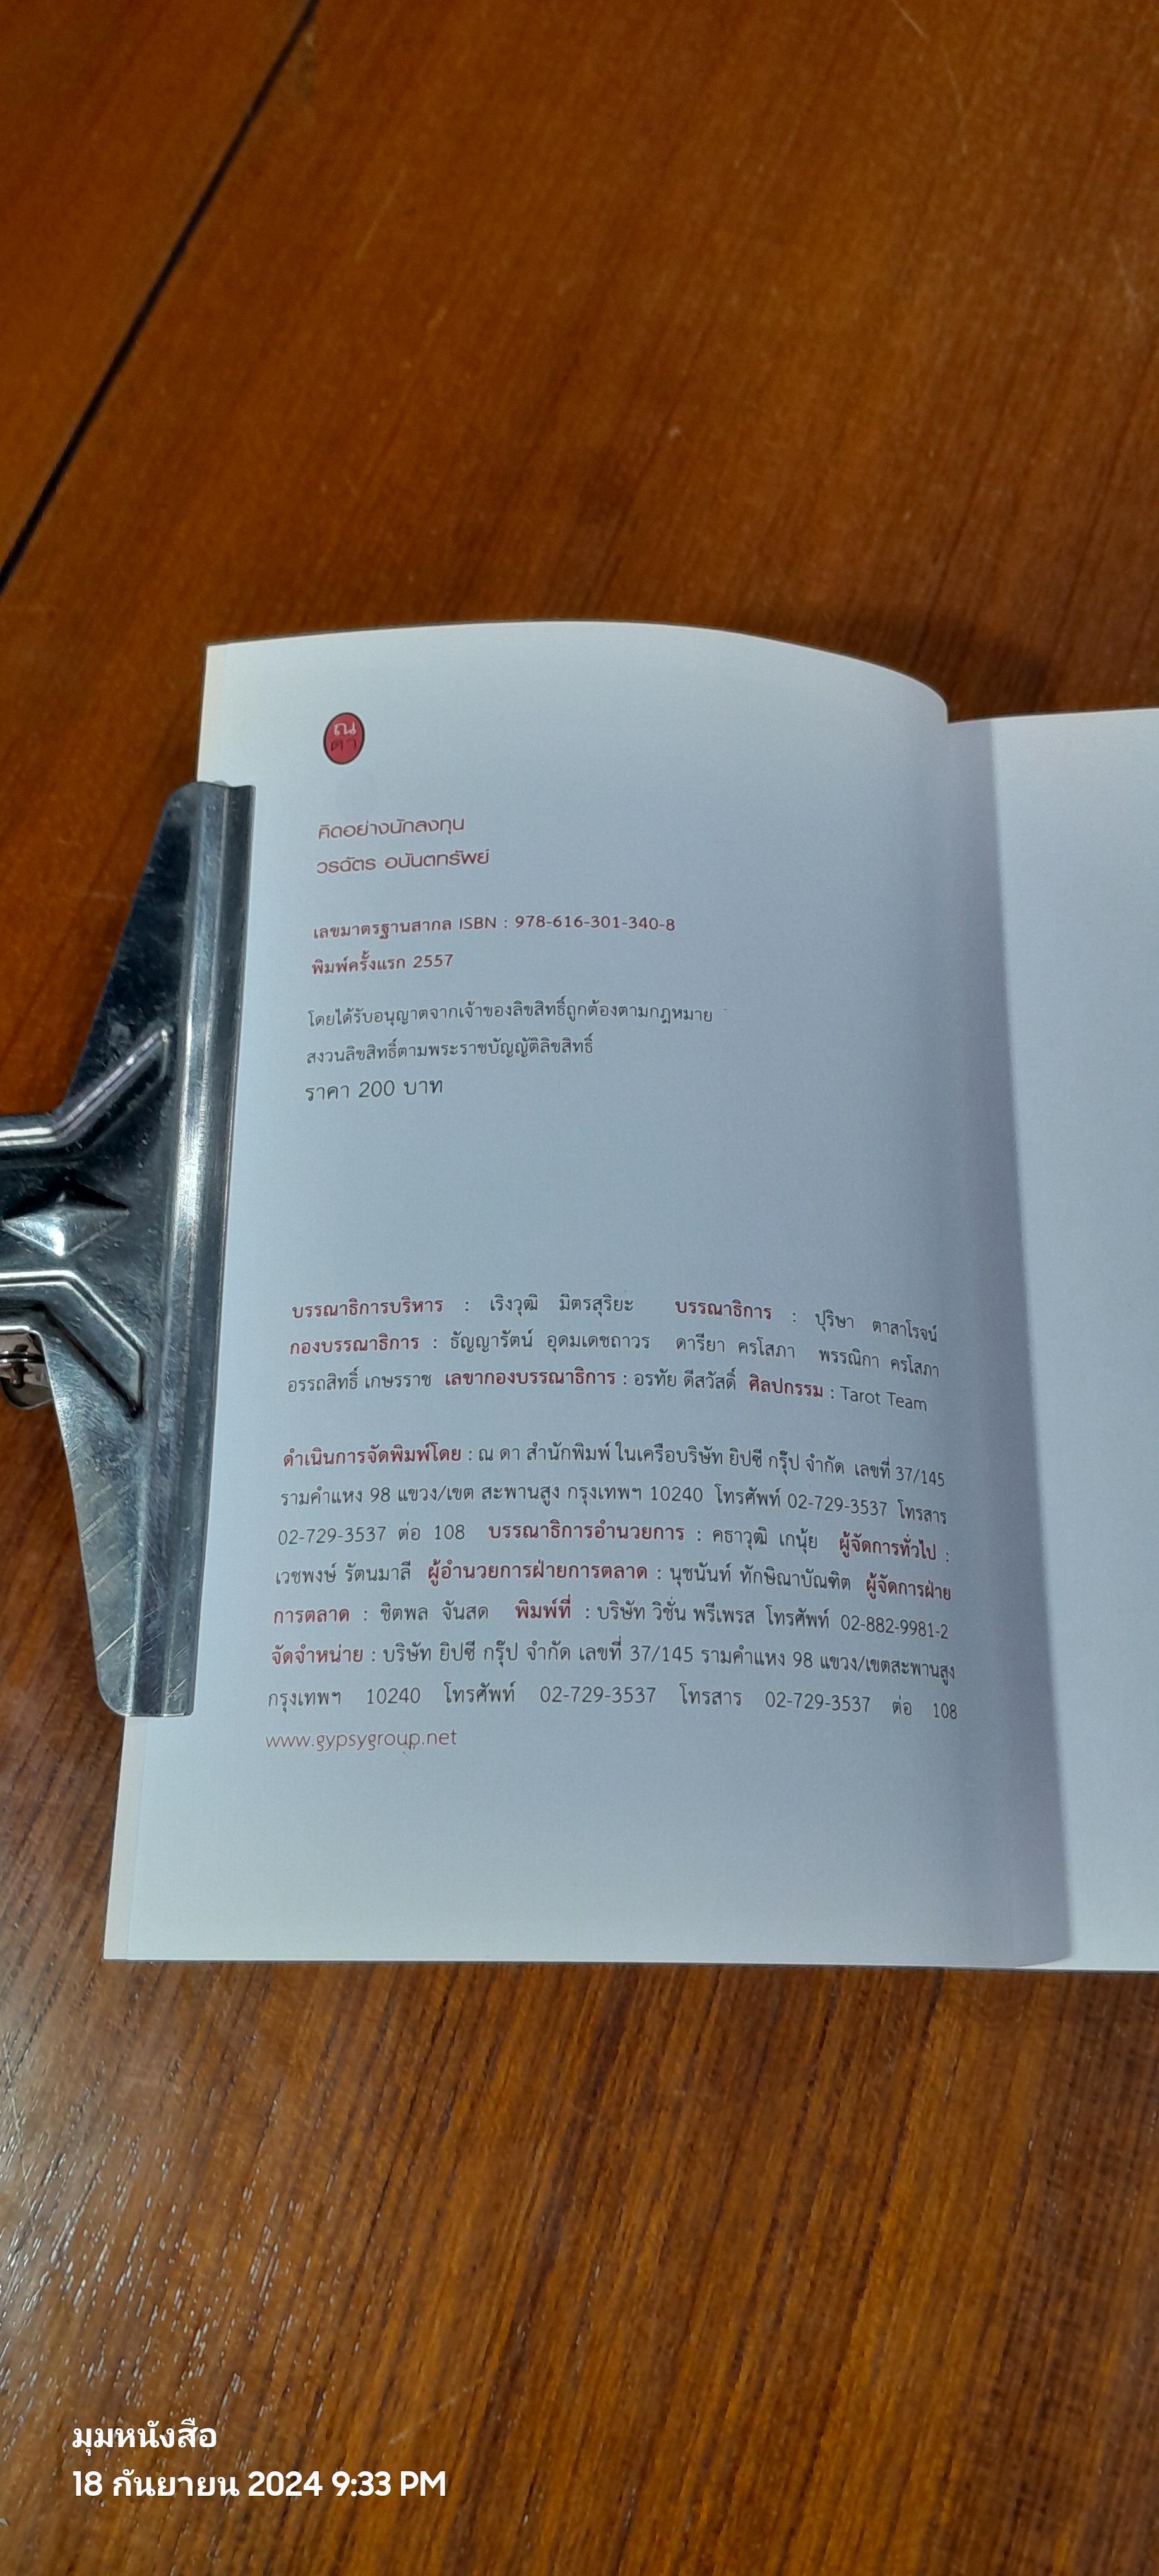 ณ
ดา
คิดอย่างนักลงทุน
วรฉัตร อนันตทรัพย์
เลขมาตรฐานสากล ISBN : 978-616-301-340-8
พิมพ์ครั้งแรก 2557
โดยได้รับอนุญาตจากเจ้าของลิขสิทธิ์ถูกต้องตามกฎหมาย
สงวนลิขสิทธิ์ตามพระราชบัญญัติลิขสิทธิ์
ราคา 200 บาท
บรรณาธิการบริหาร : เริงวุฒิ มิตรสุริยะ บรรณาธิการ : ปุริษา ตาสาโรจน์
กองบรรณาธิการ : ธัญญารัตน์ อุดมเดชถาวร ดารียา ครโสภา พรรณิกา ครโสภา
อรรถสิทธิ์ เกษรราช เลขากองบรรณาธิการ : อรทัย ดีสวัสดิ์ ศิลปกรรม : Tarot Team
ดำเนินการจัดพิมพ์โดย : ณ ดา สำนักพิมพ์ ในเครือบริษัท ยิปซี กรุ๊ป จำกัด เลขที่ 37/145
รามคำแหง 98 แขวง/เขต สะพานสูง กรุงเทพฯ 10240 โทรศัพท์ 02-729-3537 โทรสาร
02-729-3537 ต่อ 108 บรรณาธิการอำนวยการ : คธาวุฒิ เกนุ้ย ผู้จัดการทั่วไป :
เวชพงษ์ รัตนมาลี ผู้อำนวยการฝ่ายการตลาด : นุชนันท์ ทักษิณาบัณฑิต ผู้จัดการฝ่าย
การตลาด : ชิตพล จันสด พิมพ์ที่ : บริษัท วิชั่น พรีเพรส โทรศัพท์ 02-882-9981-2
จัดจำหน่าย : บริษัท ยิปซี กรุ๊ป จำกัด เลขที่ 37/145 รามคำแหง 98 แขวง/เขตสะพานสูง
กรุงเทพฯ 10240 โทรศัพท์ 02-729-3537 โทรสาร 02-729-3537 ต่อ 108
www.gypsygroup.net
มุมหนังสือ
18 กันยายน 2024 9:33 PM